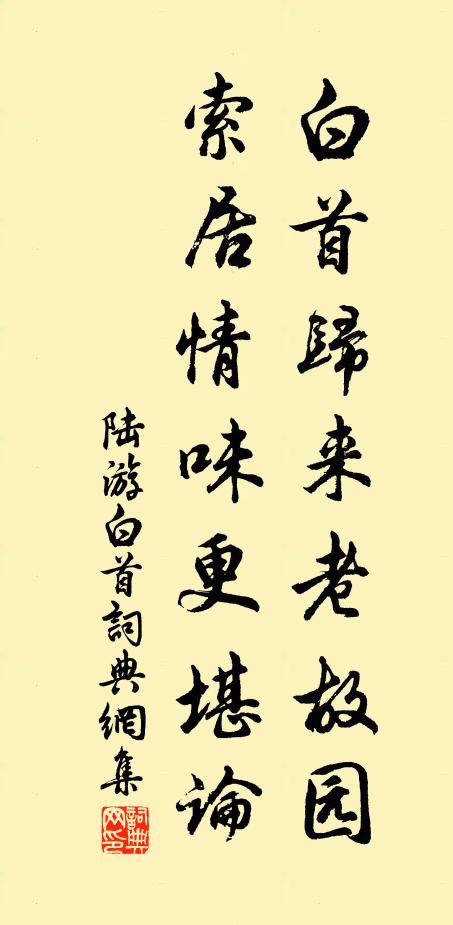 白首歸来老故园
索居情味更堪論
陆游白首詞典網集
詞典网印